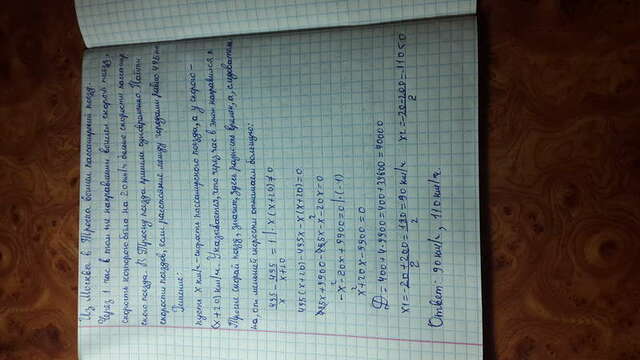 Из Москвы в Троска вышел пассажирский поезд.
Через 1 час в том же направлении вышел скорый поезд,
скорость которого была на 20 км/ч больше скорости пассажир
ского поезда. В Троску пришли одновременно. Найти
скорости поездов, если расстояние между городами равно 495 км
Решение:
пусть x км/ч-скорость пассажирского поезда, а у скорого-
(x+20) км/ч. Указывается, что через час в этом направился в
скорый поезд, значит, здесь разность времен, а, следователь
но, от меньшей скорости отнимаем большую:
495/x - 495/x+20 = 1 | · x (x+20) ≠ 0
495(x+20)-495x-x(x+20)=0
495x+9900-495x-x²-20x=0
-x²-20x+9900=0 | ·(-1)
x²+20x-9900=0
D=400+4·9900=400+39600=40000
x1=-20+200/2=180/2=90 км/ч x2=-20-200/2=-110<0
Ответ: 90 км/ч, 110 км/ч.